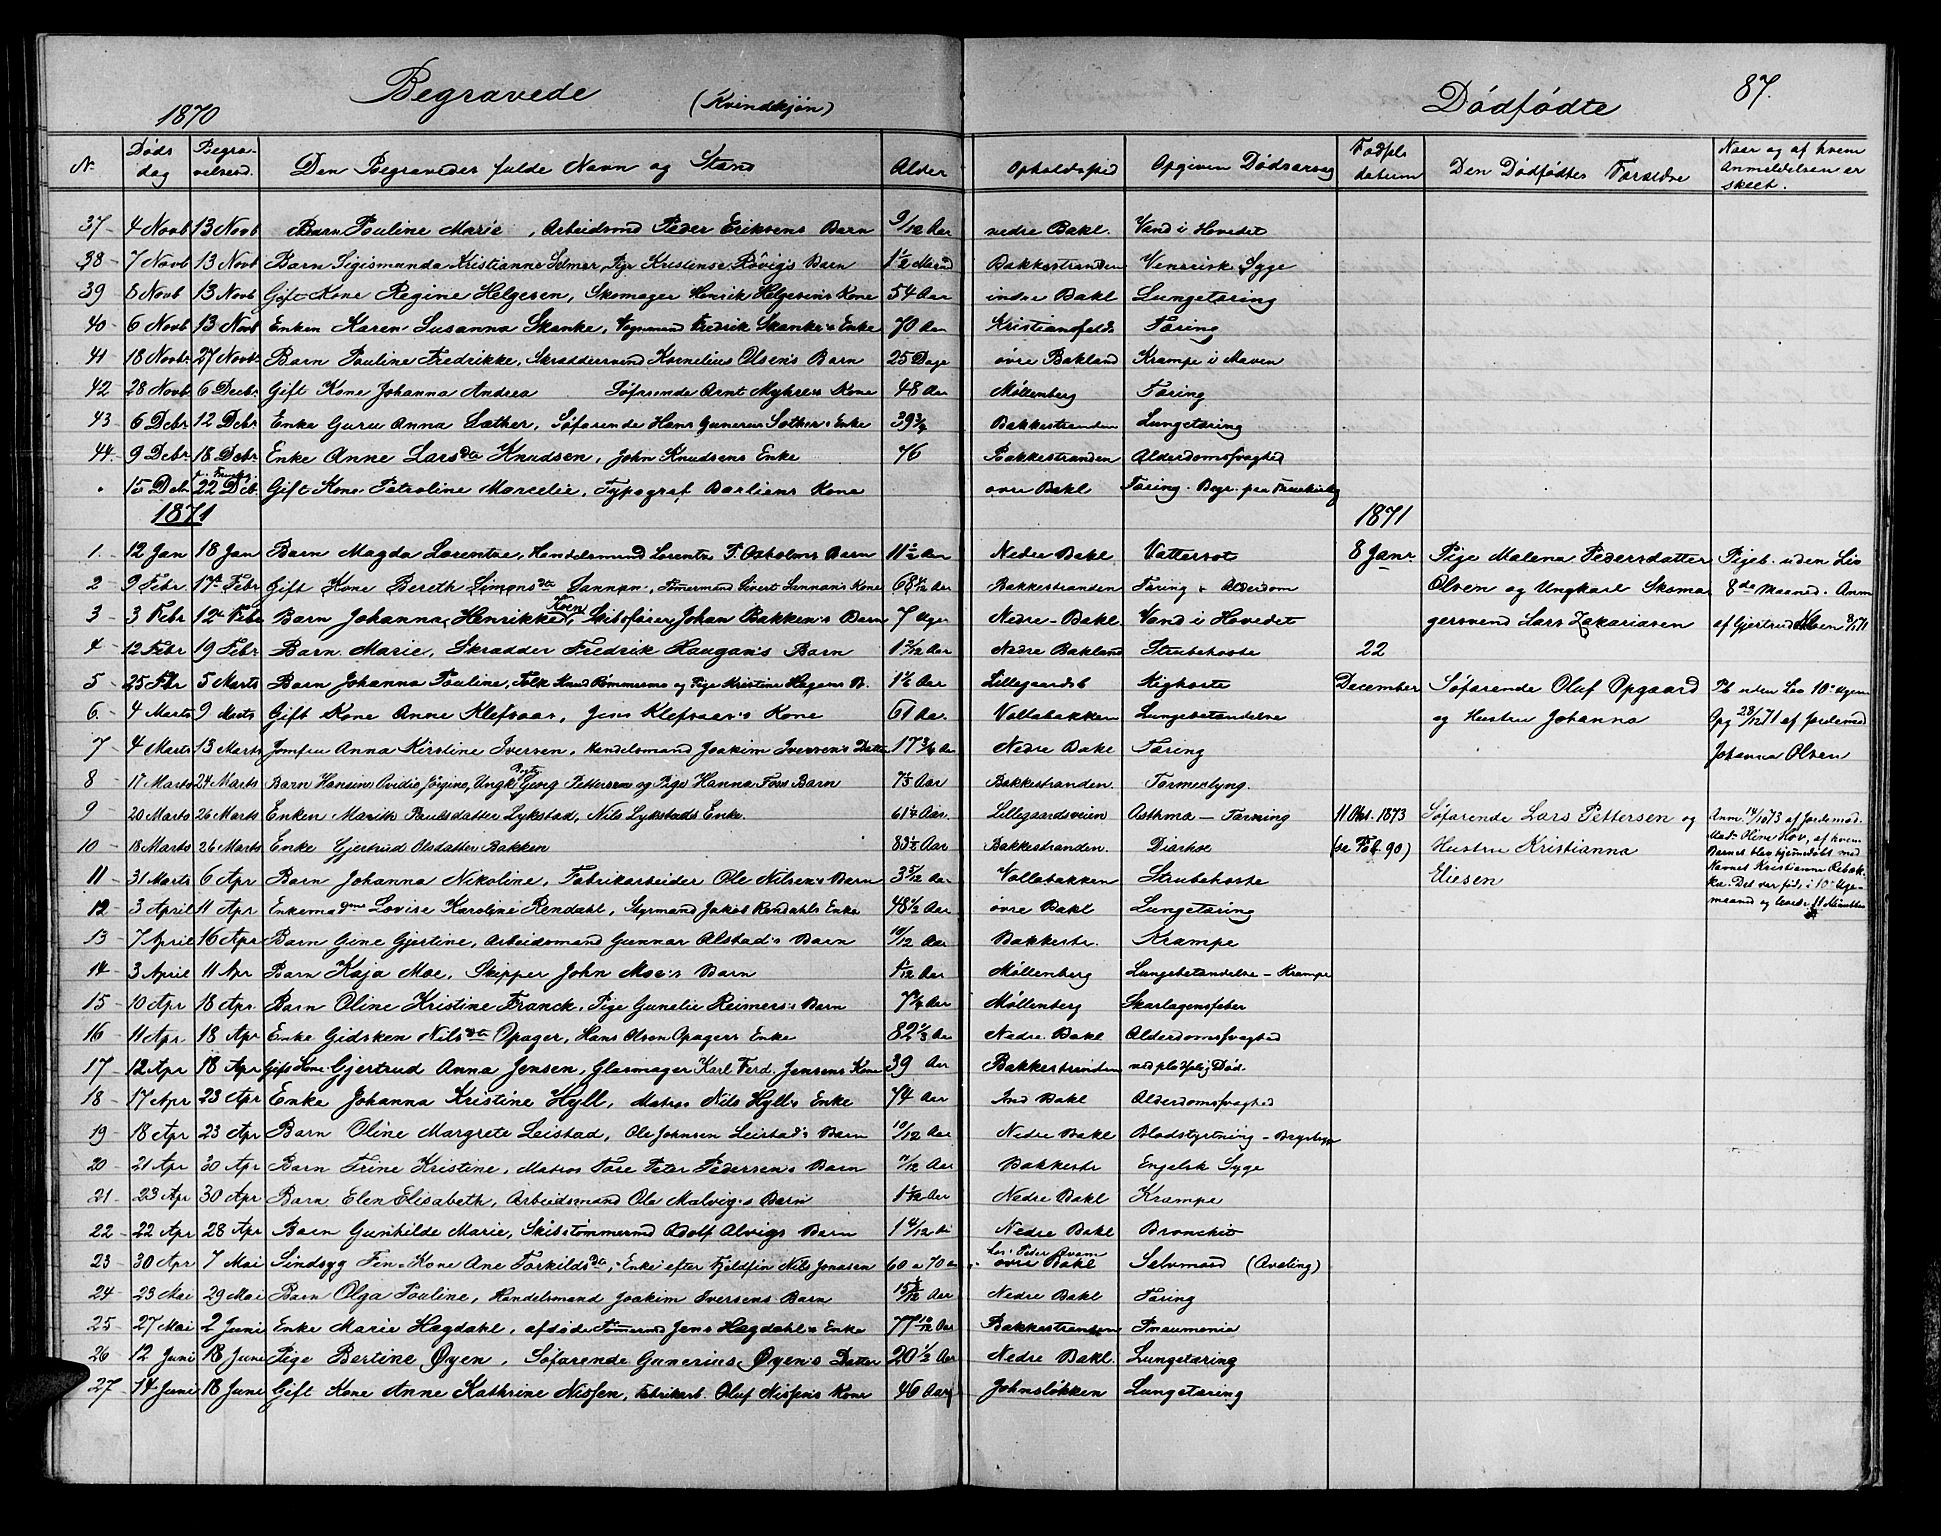 Begravede (Kvindekjön) Dödfödte 87.
1870
N. Döds dag Begravelsesd. Den Begravedes fulde Navn og Stand Alder Opholdssted Opgiven Dödsaarsag Födselsdatum Den Dödfödtes Forældre Naar og af hvem Anmeldelsen er skeet.
37 - 4 Novb 13 Novb Barn Pauline Marie, Arbeidsmd Peder Eriksens Barn 9/12 Aar nedre Bakl. Vand i Hovedet
38 - 7 Novb 13 Novb Barn Sigismunda Kristianne Selmer, Pige Kristense Rövig's Barn 1 1/2 Maaned Bakkestranden Venerisk Syge
39 8 Novb 13 Novb Gift Kone Regine Helgesen, Skomager Henrik Helgesen's Kone 54 Aar indre Bakl Lungetæring
40 - 6 Novb 13 Novb Enken Karen Susanna Skanke, Vognmand Fredrik Skanke's Enke 70 Aar Kristiansfeldt Tæring
41 18 Novb. 27 Novb. Barn Pauline Fredrikke, Skræddersvend Kornelius Olsen's Barn 25 Dage övre Bakland Krampe i Maven
42 28 Novb. 6 Decb. Gift Kone Johanna Andrea Söfarende Arnt Myhre's Kone 48 Aar Möllenberg Tæring
43 6 Debr 12 Debr Enke Guru Anna Sæther, Söfarende Hans Gunerus Sæther's Enke 39 3/4 Bakkestranden Lungetæring
44. 9 Debr 18 Debr Enke Anne Larsdtr Knudsen, John Knudsens Enke 76 Bakkestranden Alderdomssvaghed
15 Deb 22 Deb Gift Kone Petroline Marcelie, Typograf Barliens Kone övre Bakl Tæring. Begr. paa Fruekirkeg
1871 1871
1. 12 Jan 18 Jan Barn Magda Lorentze, Handelsmand Lorentz P. Oxholms Barn 11 1/2 Aar Nedre Bakl Vattersot 8 Janr. Pige Malena Pedersdatter Pigeb. uden Liv
2 9 Febr 17 Febr Gift Kone Bereth Simonsdtr Sannan, Tömermand Sivert Sannan's Kone 68 1/2 Aar Bakkestranden Tæring & Alderdom Olsen og Ungkarl Skoma 8de Maaned. Anm
3 3 Febr 12 Febr Barn Johanna Henrikke, Skibsförer Johan Bakken's Barn 7 Uger Nedre-Bakl. Vand i Hovedet gersvend Lars Zakariasen af Gjertrud Olsen 9/1 71
4 12 Febr 19 Febr Barn Marie, Skrædder Fredrik Haugan's Barn 1 3/12 Aar Nedre Bakland Strubehoste 22
5 25 Fbr 5 Marts Barn Johanna Pauline, Folk Knud Römmesmo og Pige Kristine Hagens B. 1 1/2 Aar Lillegaardsb Kighoste December Söfarende Oluf Opgaard Pb uden Liv 10 Ugem
6. 4 Marts 9 Marts Gift Kone Anne Klefsaas, Jens Klefsaas's Kone 61 Aar Vollabakken Lungebetændelse og Hustru Johanna Opg 28/12 71 af Jordemod
7 4 Marts 13 Marts Jomfru Anna Kirstine Iversen, Handelsmand Joakim Iversen's Datter 17 3/4 Aar Nedre Bakl Tæring Johanna Olsen
8 17 Marts 24 Marts Barn Hansine Ovidia Jörgine, Ungk Georg Pettersens og Pige Hanna Foss Barn 7 1/2 Aar Bakkestranden. Tarmeslyng.
9 20 Marts 26 Marts Enken Marith Paulsdatter Lykstad, Nils Lykstads Enke. 61 1/4 Aar. Lillegaardsveien Asthma - Tæring 11 Okt. 1873 Söfarende Lars Pettersen og Anm. 14/10 73 af Jordemod.
10 18 Marts 26 Marts Enke Gjertrud Olsdatter Bakken 83 1/2 Aar Bakkestranden. Diarhoe (se Pag. 90) Hustru Kristianna Mad. Oline Hov, af hvem
11 31 Marts 6 Apr Barn Johanna Nikoline, Fabrikarbeider Ole Nilsen's Barn 3 5/12 Aar Vollabakken Strubehoste Eliesen Barnet blev hjemmedöbt med Navnet Kristianne Rebekka. Det var föd. i 10 Ugemaaned og levede 11 Minutter
12 3 April 11 Apr Enkemadme Lovise Karoline Rendahl, Styrmand Jakob Rendahls Enke 48 1/2 Aar övre Bakl Lungetæring
13 - 7 April 16 Apr Barn Gine Gjertine, Arbeidsmand Gunnar Alstad's Barn 10/12 Aar Bakkestr. Krampe
14 - 3 April 11 Apr Barn Kaja Moe, Skipper John Moe's Barn /12 Aar Möllenberg Lungebetændelse - Krampe
15 10 Apr 18 Apr Barn Oline Kristine Franck. Pige Gunelie Reimers's Barn 7 3/4 Aar Möllenberg Skarlagensfeber
16 11 Apr. 18 Apr Enke Gidsken Nilsdtr Opager, Hans Olsen Opagers Enke 82 1/3 Aar Nedre Bakl Alderdomssvaghed
17 12 Apr 18 Apr Gift Kone Gjertrud Anna Jensen, Glasmager Karl Ferd. Jensens Kone 39 Aar Bakkestranden ved pludselig Död.
18 - 17 Apr 23 Apr Enke Johanna Kristine Hyll, Matros Nils Hyll's Enke 74 Aar Ind Bakl Alderdomssvaghed
19 18 Apr 23 Apr Barn Oline Margrete Leistad, Ole Johnsen Leistad's Barn 10/12 Aar Nedre Bakl Blodstyrtning - Brystsyge
20 21 Apr 30 Apr Barn Trine Kristine, Matros Tore Peter Pedersen's Barn 11/12 Aar Bakkestr Engelsk Syge
21 - 23 Apr 30 Apr Barn Elen Elisabeth, Arbeidsmand Ole Malvig's Barn 1 1/12 Aar Nedre Bakl Krampe
22 - 22 Apr 28 Apr Barn Gunhilde Marie, Skibstömmermd Adolf Alvigs Barn 1 4/12 A. Nedre Bakl Bronchit
23 - 30 Apr 7 Mai Sindsyg Fin-Kone Ane Torkildsdtr, Enke efter Fjeldfin Nils Jonassen 60 a 70 Aar hos Peder Kvam övre Bakl Selvmord (Qvæling)
24 - 23 Mai 29 Mai Barn Olga Pauline, Handelsmand Joakim Iversens Barn 15 /12 Aar Nedre Bakl Tæring
25 27 Mai 2 Juni Enke Marie Hagdahl, afdöde Tömermd Jens Hagdahl's Enke 77 10/12 Aar Bakkestranden Pneumonia
26 - 12 Juni 18 Juni Pige Bertine Öyen, Söfarende Gunerius Öyen's Datter 20 1/3 Aar Nedre Bakl. Lungetæring
27 - 14 Juni 18 Juni Gift Kone Anne Kathrine Nissen, Fabrikarb. Oluf Nissen's Kone 46 Aar Johnslökken Lungetæring